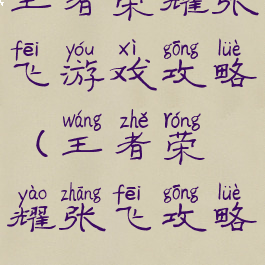 王者荣耀张
fēi yóu xì gōng lüè
飞游戏攻略
wáng zhě róng
(王者荣
yào zhāng fēi gōng lüè
耀张飞攻略